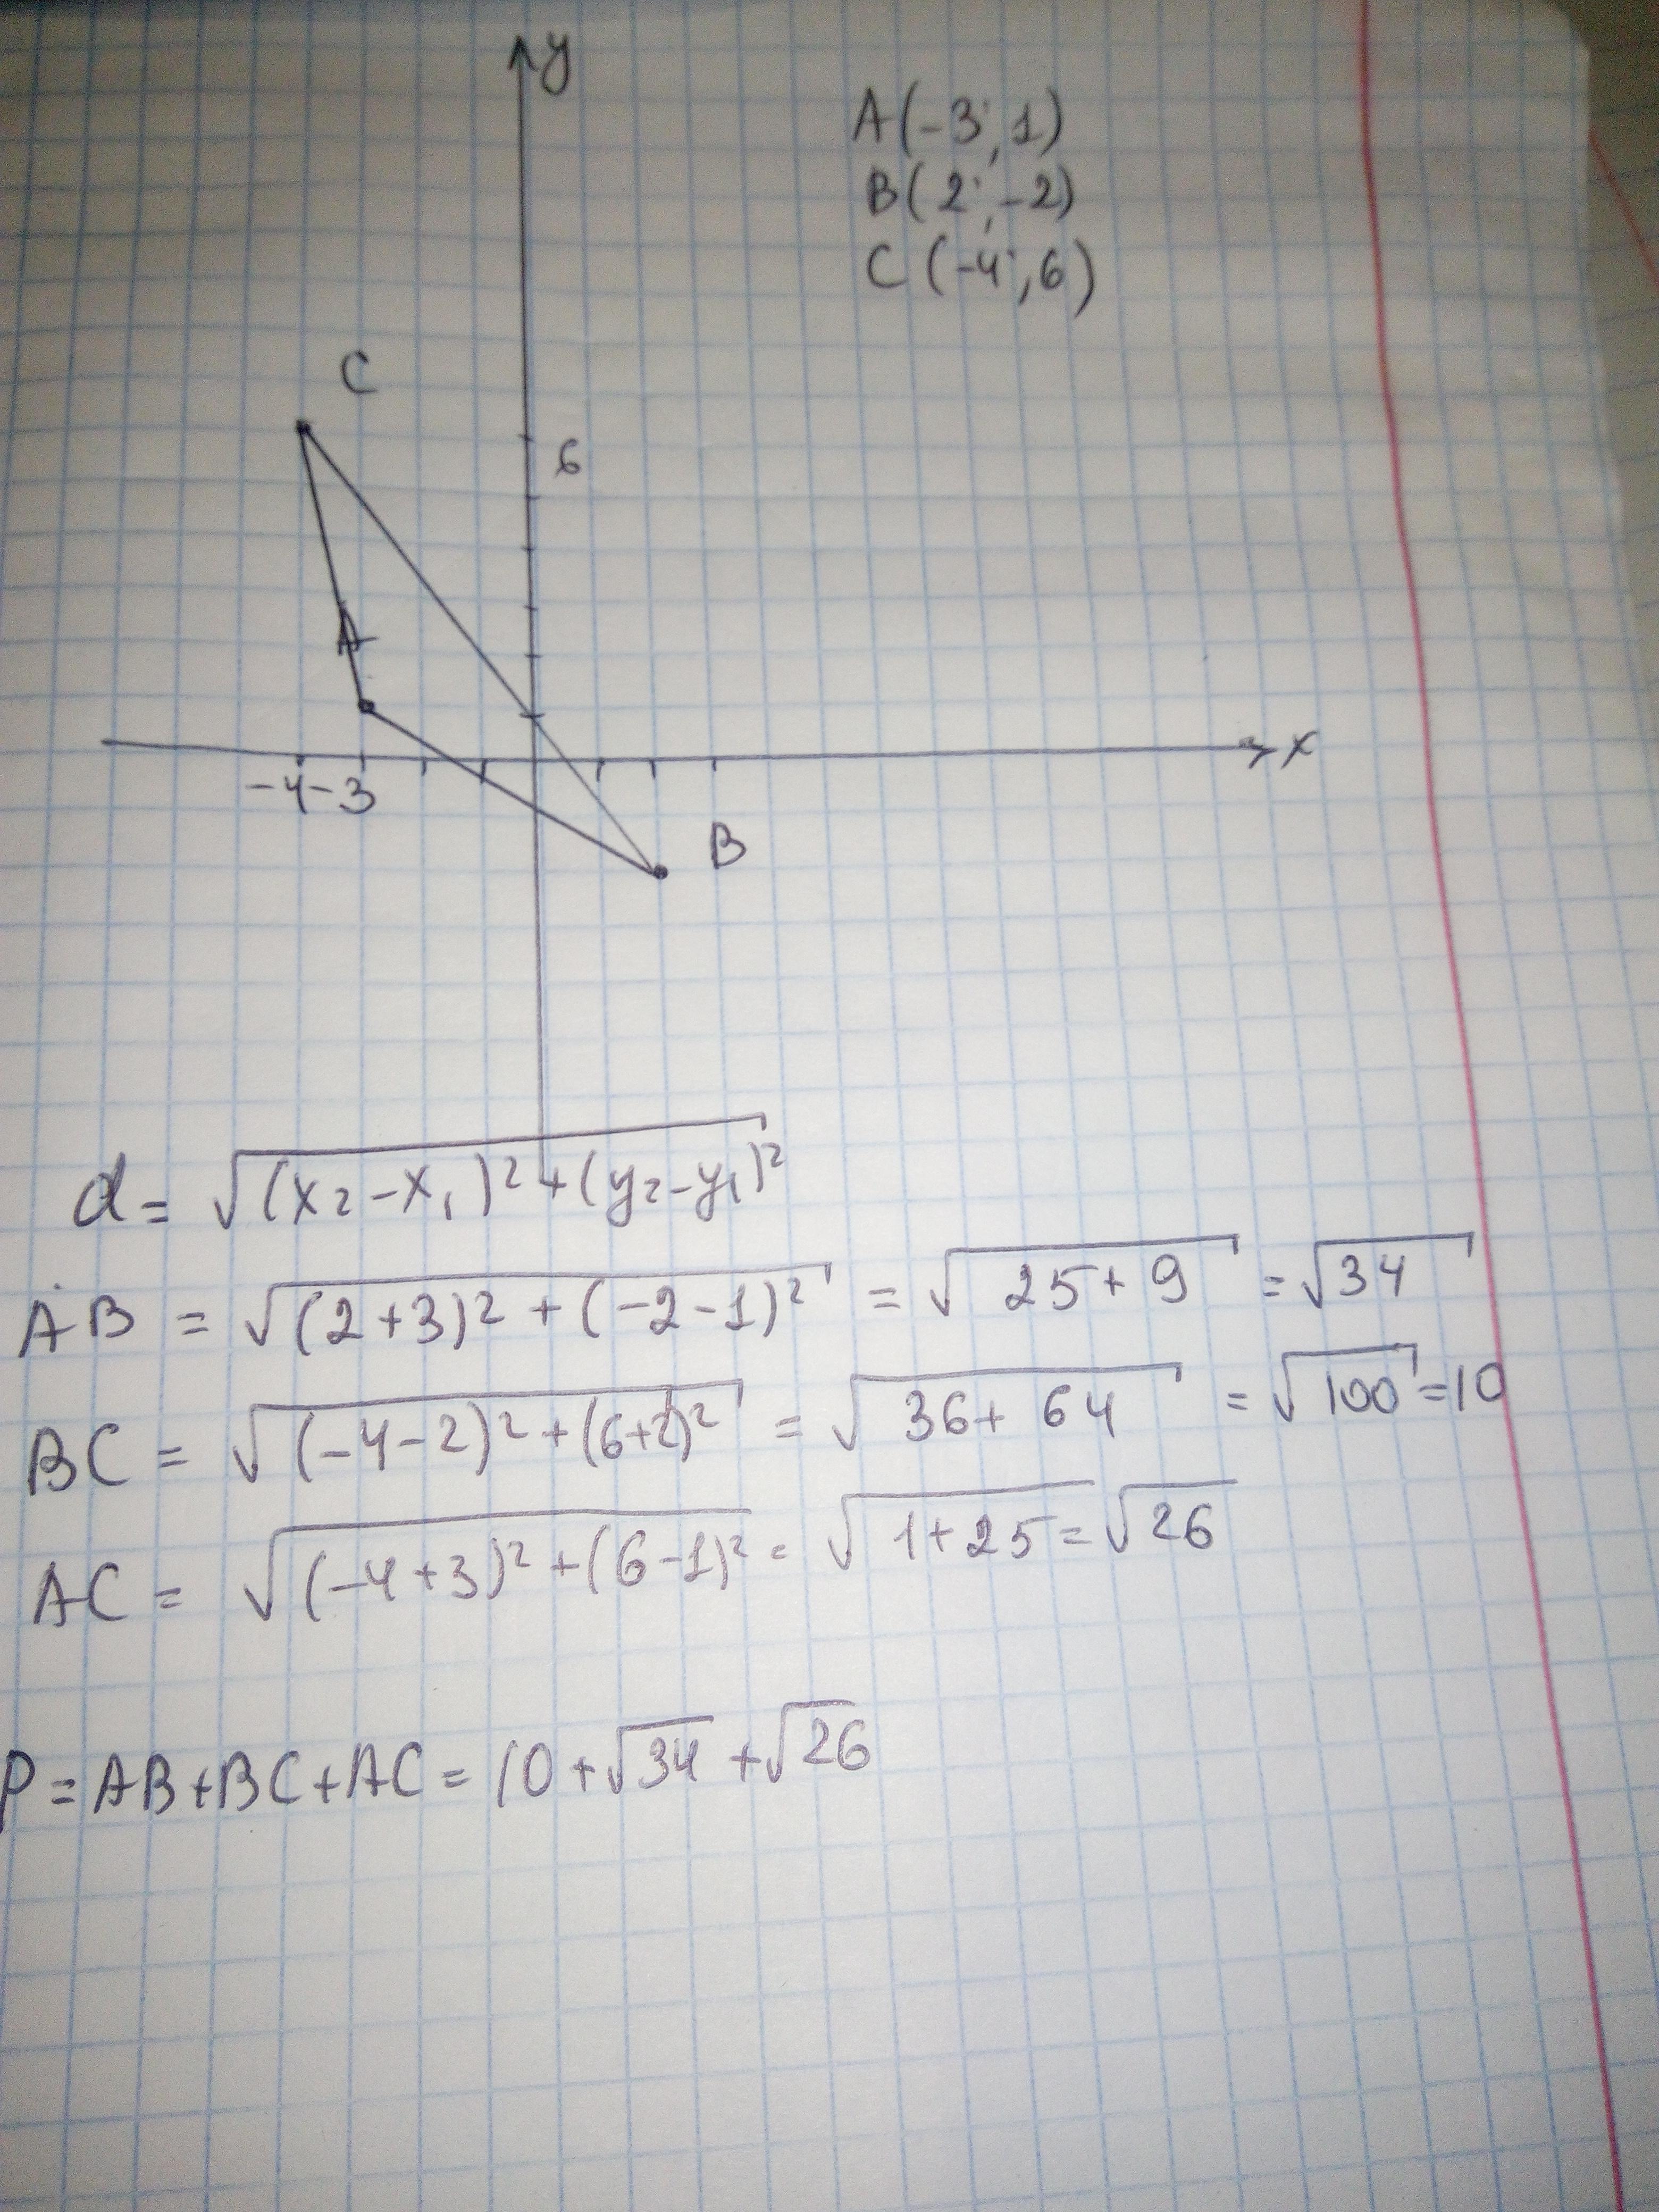 y
A(-3; 1)
B(2; -2)
C(-4; 6)
C
6
A
-4 -3
x
B
d = √((x₂ - x₁)² + (y₂ - y₁)²
AB = √((2+3)² + (-2-1)²) = √(25+9) = √34
BC = √((-4-2)² + (6+2)²) = √(36+64) = √100 = 10
AC = √((-4+3)² + (6-1)²) = √(1+25) = √26
P = AB+BC+AC = 10 + √34 + √26